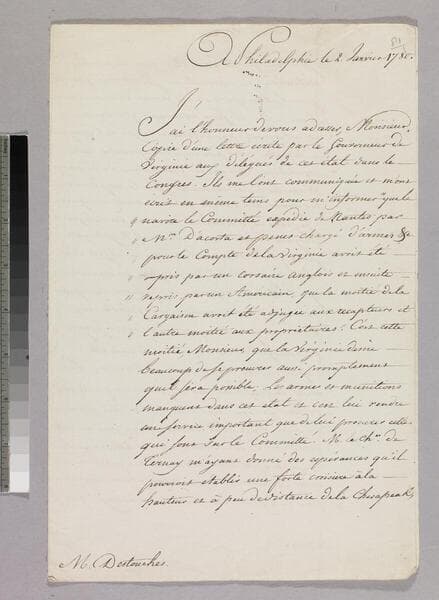 A Philadelphie le 2 Janvier 178
J'ai l'honneur de vous adresser, Monsieur,
Copie d'une lettre ecrite par le Gouverneur de
Virginie aux délégués de cet état dans le
Congres. Ils me l'ont communiquée et m'ont
ecrit en même tems pour m'informer que le
navire le Committé expedié de Nantes par
Mrs. Dacosta et freres chargé d'armes &c
pour le Compte de la Virginie avoit été
pris par un corsaire Anglois et ensuite
repris par un Americain, que la moitié de la
Cargaison avoit été adjugée aux recapteurs et
l'autre moitié aux proprietaires. C'est cette
moitié Monsieur, que la Virginie desire
beaucoup de se procurer aussi promptement
qu'il sera possible. Les armes et munitions
manquent dans cet état et c'est lui rendre
un service important que de lui procurer celles
qui sont sur le Committé. M. le Chr. de
Ternay m'ayant donné des espérances qu'il
pourroit etablir une forte croisiere à la
hauteur et à peu de distance de la Chesapeak,
M. Destouches.